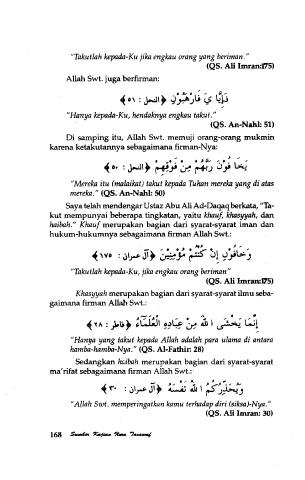 "Takutlah kepada-Ku jika engkau orang yang beriman."
(QS. Ali Imran:175)
Allah Swt. juga berfirman:
فَإِيَّا يَ فَارْهَبُوْنِ ﴿النحل : ٥١﴾
"Hanya kepada-Ku, hendaknya engkau takut."
(QS. An-Nahl: 51)
Di samping itu, Allah Swt. memuji orang-orang mukmin
karena ketakutannya sebagaimana firman-Nya:
يَخَا فُوْنَ رَبَّهُمْ مِنْ فَوْقِهِمْ ﴿النحل : ٥٠﴾
"Mereka itu (malaikat) takut kepada Tuhan mereka yang di atas
mereka." (QS. An-Nahl: 50)
Saya telah mendengar Ustaz Abu Ali Ad-Daqaq berkata, "Ta-
kut mempunyai beberapa tingkatan, yaitu khauf, khasyyah, dan
haibah." Khauf merupakan bagian dari syarat-syarat iman dan
hukum-hukumnya sebagaimana firman Allah Swt.:
وَخَافُوْنِ إِنْ كُنْتُمْ مُؤْمِنِيْنَ ﴿آل عمران : ١٧٥﴾
"Takutlah kepada-Ku, jika engkau orang beriman"
(QS. Ali Imran:175)
Khasyyah merupakan bagian dari syarat-syarat ilmu seba-
gaimana firman Allah Swt.:
إِنَّمَا يَخْشَى ا للهَ مِنْ عِبَادِهِ الْعُلَمَاءُ ﴿فاطر : ٢٨﴾
"Hanya yang takut kepada Allah adalah para ulama di antara
hamba-hamba-Nya." (QS. Al-Fathir: 28)
Sedangkan haibah merupakan bagian dari syarat-syarat
ma'rifat sebagaimana firman Allah Swt.:
وَيُحَذِّرُكُمُ ا للهُ نَفْسَهُ ﴿آل عمران : ٣٠﴾
"Allah Swt. memperingatkan kamu terhadap diri (siksa)-Nya."
(QS. Ali Imran: 30)
168 Sumber Kajian Ilmu Tasawuf